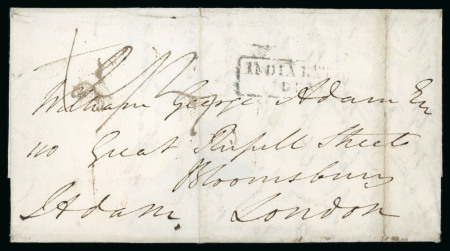 INDIA L
William George Adam Esq
110 Great Russell Street
Bloomsbury
JAdam. London